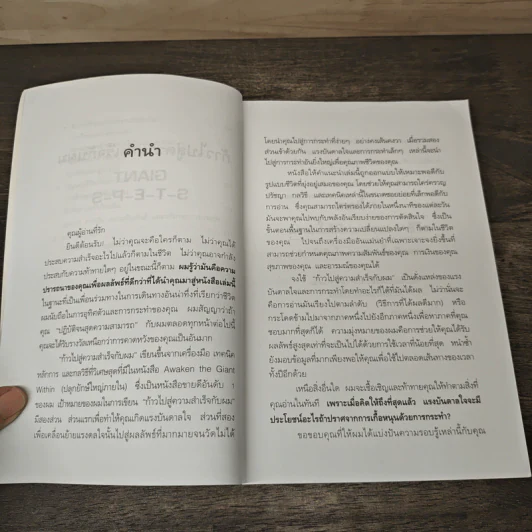 คำนำ
คุณผู้อ่านที่รัก
ยินดีต้อนรับ! ไม่ว่าคุณจะคือใครก็ตาม ไม่ว่าคุณได้
ประสบความสำเร็จอะไรไปแล้วก็ตามในชีวิต ไม่ว่าคุณอาจกำลัง
ประสบกับความท้าทายใดๆ อยู่ในขณะนี้ก็ตาม ผมรู้ว่ามันคือความ
ปรารถนาของคุณเพื่อผลลัพธ์ที่ดีกว่าที่ได้นำคุณมาสู่หนังสือเล่มนี้
ในฐานะที่เป็นเพื่อนร่วมทางในการเดินทางอันน่าทึ่งที่เรียกว่าชีวิต
ผมนับถือในการอุทิศตัวและการกระทำของคุณ ผมสัญญาว่าถ้า
คุณ "ปฏิบัติจนสุดความสามารถ" กับผมตลอดทุกหน้าต่อไปนี้
คุณจะได้รับรางวัลเหนือกว่าการคาดหวังของคุณเป็นอันมาก
"ก้าวไปสู่ความสำเร็จกับผม" เขียนขึ้นจากเครื่องมือ เทคนิค
หลักการ และกลวิธีที่วิเศษสุดที่มีในหนังสือ Awaken the Giant
Within (ปลุกยักษ์ใหญ่ภายใน) ซึ่งเป็นหนังสือขายดีอันดับ 1
ของผม เป้าหมายของผมในการเขียน "ก้าวไปสู่ความสำเร็จกับผม"
มีสองส่วน ส่วนแรกเพื่อทำให้คุณเกิดแรงบันดาลใจ ส่วนที่สอง
เพื่อเคลื่อนย้ายแรงดลใจนั้นไปสู่ผลลัพธ์ที่มากมายจนวัดไม่ได้
โดยนำคุณไปสู่การกระทำที่ง่ายๆ อย่างคงเส้นคงวา เมื่อรวมสอง
ส่วนเข้าด้วยกัน แรงบันดาลใจและการกระทำเล็กๆ เหล่านี้จะนำ
ไปสู่การกระทำอันยิ่งใหญ่เพื่อคุณภาพชีวิตของคุณ
หนังสือให้คำแนะนำเล่มนี้ถูกออกแบบให้เหมาะพอดีกับ
รูปแบบชีวิตที่ยุ่งอยู่เสมอของคุณ โดยช่วยให้คุณสามารถใคร่ครวญ
ปรัชญา กลวิธี และเทคนิคเหล่านี้ในขนาดของย่อยที่เล็กพอดีกับ
การอ่าน ซึ่งคุณสามารถไตร่ตรองได้ภายในหนึ่งนาทีของแต่ละวัน
มันจะพาคุณไปพบกับพลังอันเรียบง่ายของการตัดสินใจ ซึ่งเป็น
ขั้นตอนพื้นฐานในการสร้างความเปลี่ยนแปลงใดๆ ก็ตามในชีวิต
ของคุณ ไปจนถึงเครื่องมืออันแม่นยำที่เฉพาะเจาะจงยิ่งขึ้นที่
สามารถช่วยกำหนดคุณภาพความสัมพันธ์ของคุณ การเงินของคุณ
สุขภาพของคุณ และอารมณ์ของคุณได้
จงใช้ "ก้าวไปสู่ความสำเร็จกับผม" เป็นดังแหล่งของแรง
บันดาลใจและการกระทำโดยทำอะไรก็ได้ที่ได้มันได้ผล ไม่ว่ามันจะ
คือการอ่านมันเรียงไปตามลำดับ (วิธีการที่ได้ผลดีมาก) หรือ
กระโดดข้ามไปมาจากภาคหนึ่งไปยังอีกภาคหนึ่งเพื่อหาภาคที่คุณ
ชอบมากที่สุดก็ได้ ความมุ่งหมายของผมคือการช่วยให้คุณได้รับ
ผลลัพธ์สูงสุดเท่าที่จะเป็นไปได้ด้วยการใช้เวลาที่น้อยที่สุด หน่ำซ้ำ
ยังมอบข้อมูลที่มากเพียงพอให้คุณเพื่อใช้ไปตลอดเส้นทางของเวลา
ทั้งปีอีกด้วย
เหนือสิ่งอื่นใด ผมจะขอเชื้อเชิญและท้าทายคุณให้ทำตามสิ่งที่
คุณอ่านในทันที เพราะเมื่อคิดให้ถึงที่สุดแล้ว แรงบันดาลใจจะมี
ประโยชน์อะไรถ้าปราศจากการเกื้อหนุนด้วยการกระทำ?
ขอขอบคุณที่ให้ผมได้แบ่งปันความรอบรู้เหล่านี้กับคุณ